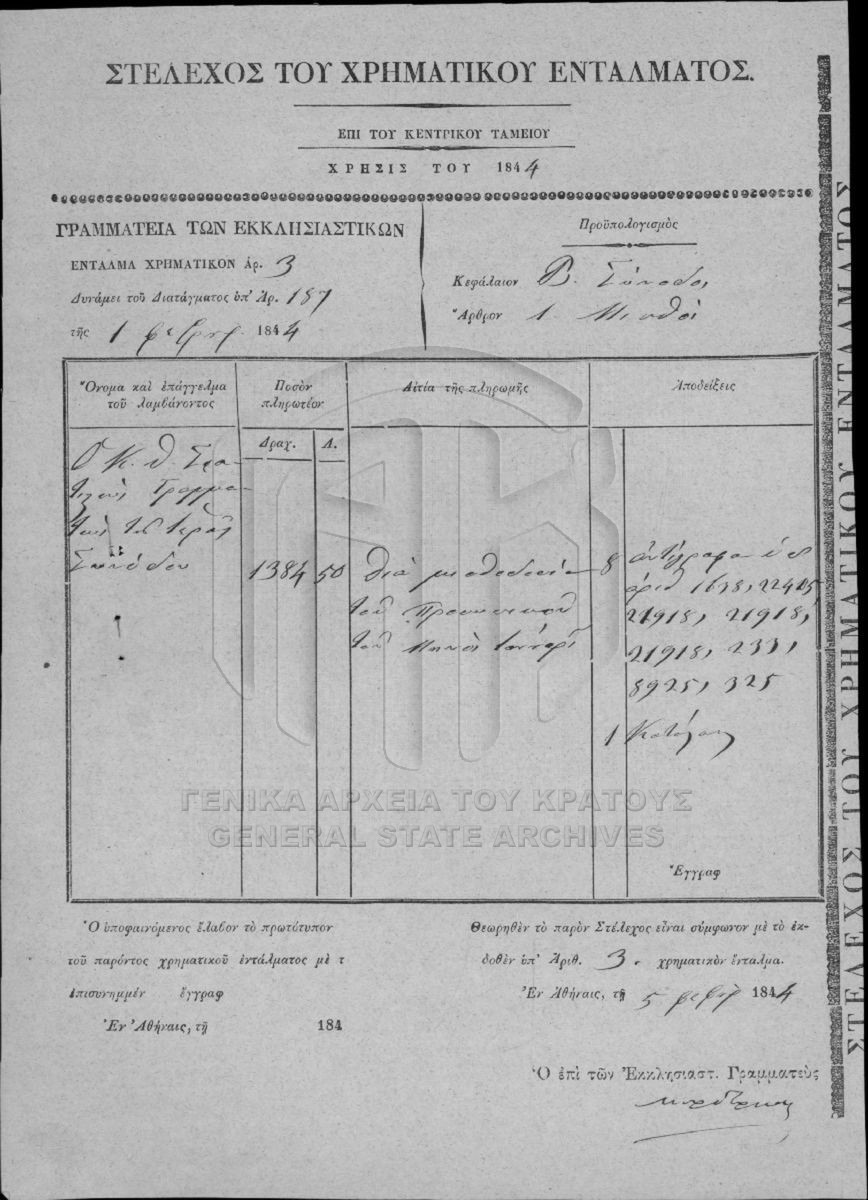 ΣΤΕΛΕΧΟΣ ΤΟΥ ΧΡΗΜΑΤΙΚΟΥ ΕΝΤΑΛΜΑΤΟΣ.
ΕΠΙ ΤΟΥ ΚΕΝΤΡΙΚΟΥ ΤΑΜΕΙΟΥ
ΧΡΗΣΙΣ ΤΟΥ 1844
ΓΡΑΜΜΑΤΕΙΑ ΤΩΝ ΕΚΚΛΗΣΙΑΣΤΙΚΩΝ
ΕΝΤΑΛΜΑ ΧΡΗΜΑΤΙΚΟΝ Ἀρ. 3
Δυνάμει τοῦ Διατάγματος ὑπ' Ἀρ. 187
τῆς 1 φεβρ. 1844
Προϋπολογισμὸς
Κεφάλαιον Β. Σύνοδοι
Ἄρθρον 1. Μισθοὶ
Ὄνομα καὶ ἐπάγγελμα
τοῦ λαμβάνοντος
Ποσὸν
πληρωτέον
Αἰτία τῆς πληρωμῆς
Ἀποδείξεις
Δραχ. Λ.
Ὁ Κ. Θ.
Γραμμα-
τεὺς τῆς Ἱερᾶς
Συνόδου
1384 50
διὰ μισθοδοσίαν
τοῦ Προσωπικοῦ
τοῦ Μηνὸς
8 ἀντίγραφα ὑπ'
ἀριθ 1638, 22415
21918, 21918,
21918, 233,
8925, 325
1 Κατάλογος
Ἔγγραφ
ΓΕΝΙΚΑ ΑΡΧΕΙΑ ΤΟΥ ΚΡΑΤΟΥΣ
GENERAL STATE ARCHIVES
Ὁ ὑποφαινόμενος ἔλαβον τὸ πρωτότυπον
τοῦ παρόντος χρηματικοῦ ἐντάλματος μὲ τ
ἐπισυνημμέν ἔγγραφ
Ἐν Ἀθήναις, τῇ 184
Θεωρηθὲν τὸ παρὸν Στέλεχος εἶναι σύμφωνον μὲ τὸ ἐκ-
δοθὲν ὑπ' Ἀριθ. 3. χρηματικὸν ἔνταλμα.
Ἐν Ἀθήναις, τῇ 5 φεβρ 1844
Ὁ ἐπὶ τῶν Ἐκκλησιαστ. Γραμματεὺς
ΣΤΕΛΕΧΟΣ ΤΟΥ ΧΡΗΜΑΤΙΚΟΥ ΕΝΤΑΛΜΑΤΟΣ